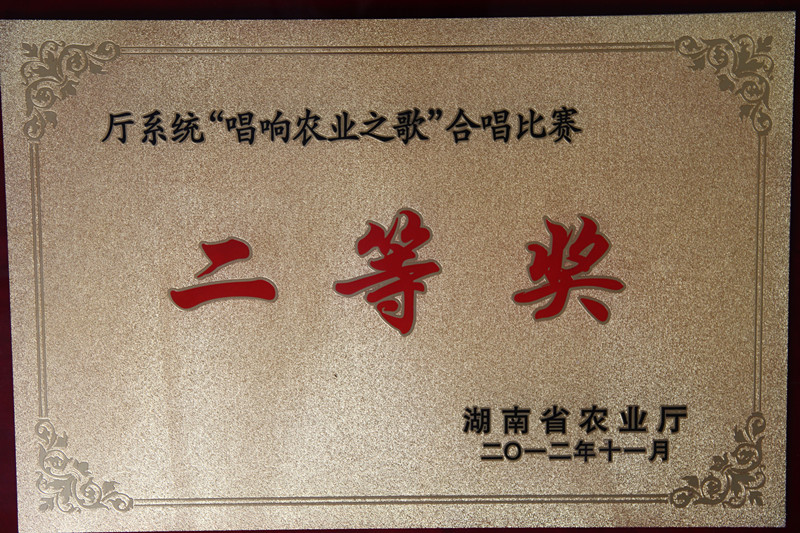 厅系统“唱响农业之歌”合唱比赛
二等奖
湖南省农业厅
二〇一二年十一月